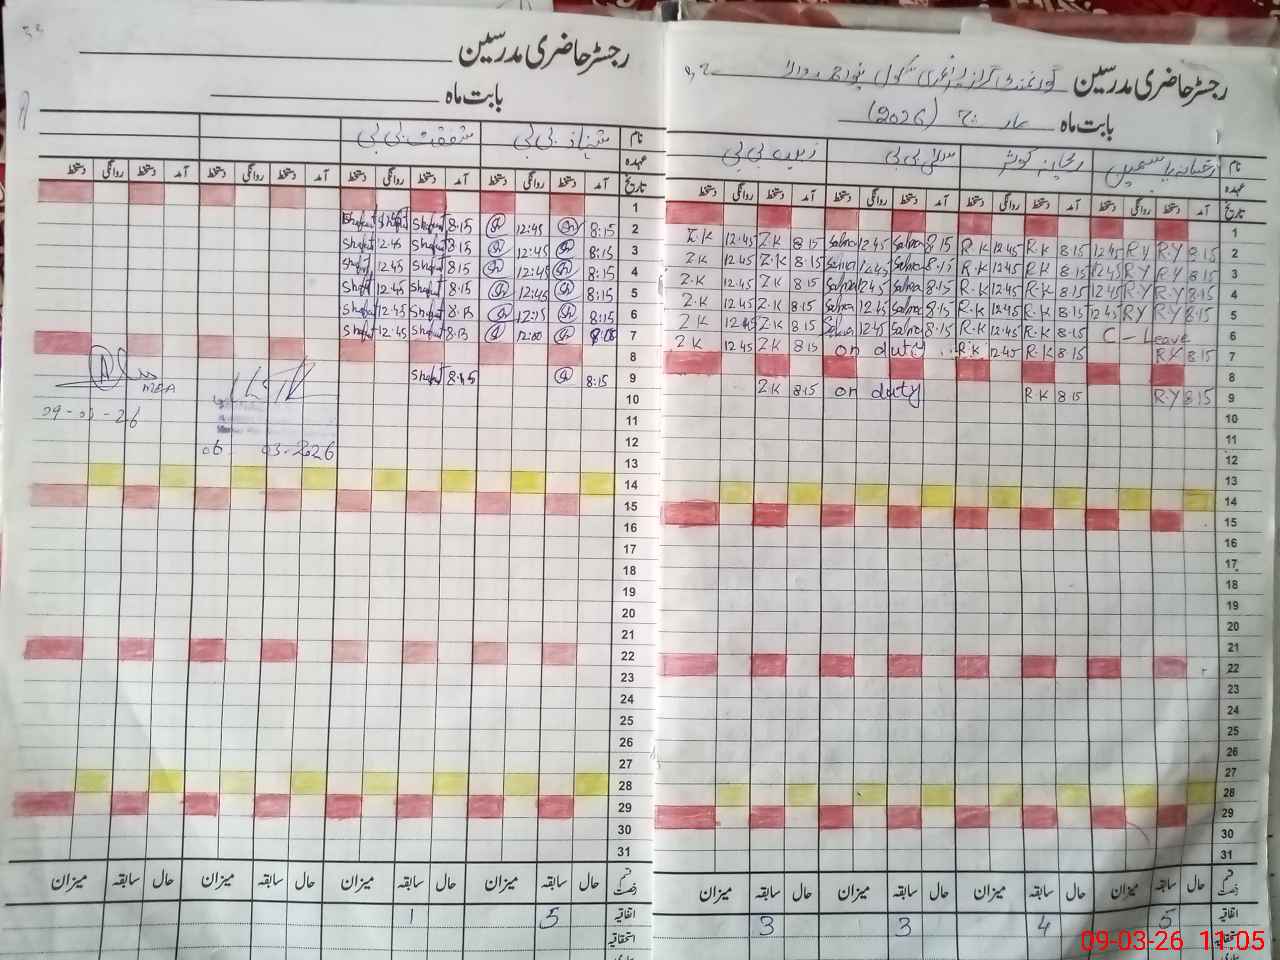 رجسٹر حاضری مدرسین گورنمنٹ گرلز پرائمری سکول
بابت ماہ مارچ (2026)
نام رخسانہ یاسمین ریحانہ کوثر سلمیٰ بی بی زینب بی بی
عہدہ
تاریخ آمد دستخط روانگی دستخط آمد دستخط روانگی دستخط آمد دستخط روانگی دستخط آمد دستخط روانگی دستخط
1
Z.K 12.45 Z.K 8.15 Salma 12.45 Salma 8.15 R.K 12.45 R.K 8.15 12.45 R.Y R.Y 8.15 2
Z.K 12.45 Z.K 8.15 Salma 12.45 Salma 8.15 R.K 12.45 R.K 8.15 12.45 R.Y R.Y 8.15 3
Z.K 12.45 Z.K 8.15 Salma 12.45 Salma 8.15 R.K 12.45 R.K 8.15 12.45 R.Y R.Y 8.15 4
Z.K 12.45 Z.K 8.15 Salma 12.45 Salma 8.15 R.K 12.45 R.K 8.15 12.45 R.Y R.Y 8.15 5
Z.K 12.45 Z.K 8.15 Salma 12.45 Salma 8.15 R.K 12.45 R.K 8.15 C - Leave 6
Z.K 12.45 Z.K 8.15 on duty R.K 12.45 R.K 8.15 R.Y 8.15 7
8
Z.K 8.15 on duty R.K 8.15 R.Y 8.15 9
10
11
12
13
14
15
16
17
18
19
20
21
22
23
24
25
26
27
28
29
30
31
قسم رخصت حال سابقہ میزان حال سابقہ میزان حال سابقہ میزان حال سابقہ میزان
اتفاقیہ 5 4 3 3
استحقاقیہ
رجسٹر حاضری مدرسین
بابت ماہ
نام شہناز بی بی شفقت بی بی
عہدہ
تاریخ آمد دستخط روانگی دستخط آمد دستخط روانگی دستخط آمد دستخط روانگی دستخط آمد دستخط روانگی دستخط
1
Shafqat 12.45 Shafqat 8.15 12:45 8:15 2
Shafqat 12.45 Shafqat 8.15 12:45 8:15 3
Shafqat 12.45 Shafqat 8.15 12:45 8:15 4
Shafqat 12.45 Shafqat 8.15 12:45 8:15 5
Shafqat 12.45 Shafqat 8.15 12:45 8:15 6
Shafqat 12.45 Shafqat 8.15 12:00 7
8
Shafqat 8.15 8:15 9
MEA
09-03-26 10
11
06 03-2026 12
13
14
15
16
17
18
19
20
21
22
23
24
25
26
27
28
29
30
31
قسم رخصت حال سابقہ میزان حال سابقہ میزان حال سابقہ میزان حال سابقہ میزان
اتفاقیہ 5 1
استحقاقیہ
09-03-26 11:05